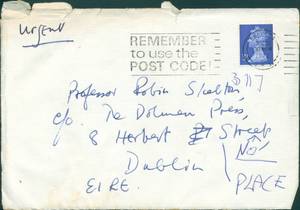 Urgent
REMEMBER
to use the
POST CODE!
Professor Robin Skelton,
c/o. The Dolmen Press,
8 Herbert Street
No!
Dublin
PLACE
EIRE.